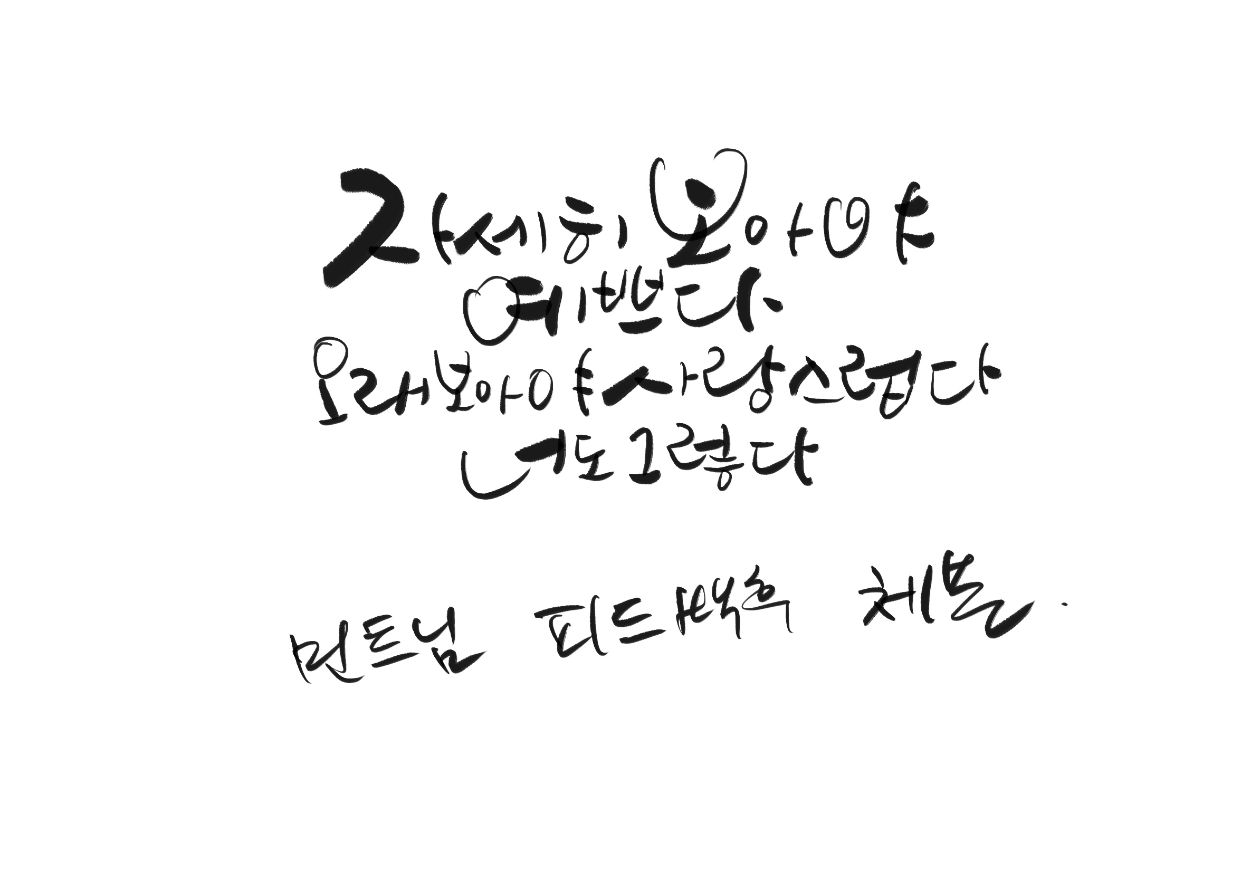 자세히 보아야
예쁘다.
오래보아야 사랑스럽다
너도 그렇다
민트님 피드백후 체본.